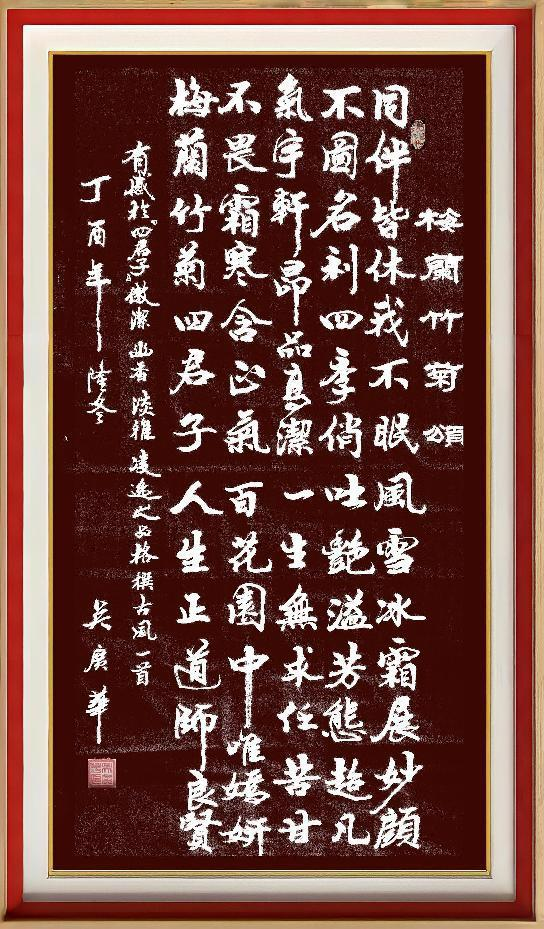 梅蘭竹菊頌
同伴皆休我不眠風雪冰霜展妙顔
不圖名利四季倘吐艷溢芳態超凡
氣宇軒昂品高潔一生無求任苦甘
不畏霜寒含正氣百花園中唯嬌妍
梅蘭竹菊四君子人生正道師良賢
有感於四君子傲潔幽香淡雅凌逸之品格撰古風一首
丁酉年隆冬 吴廣華